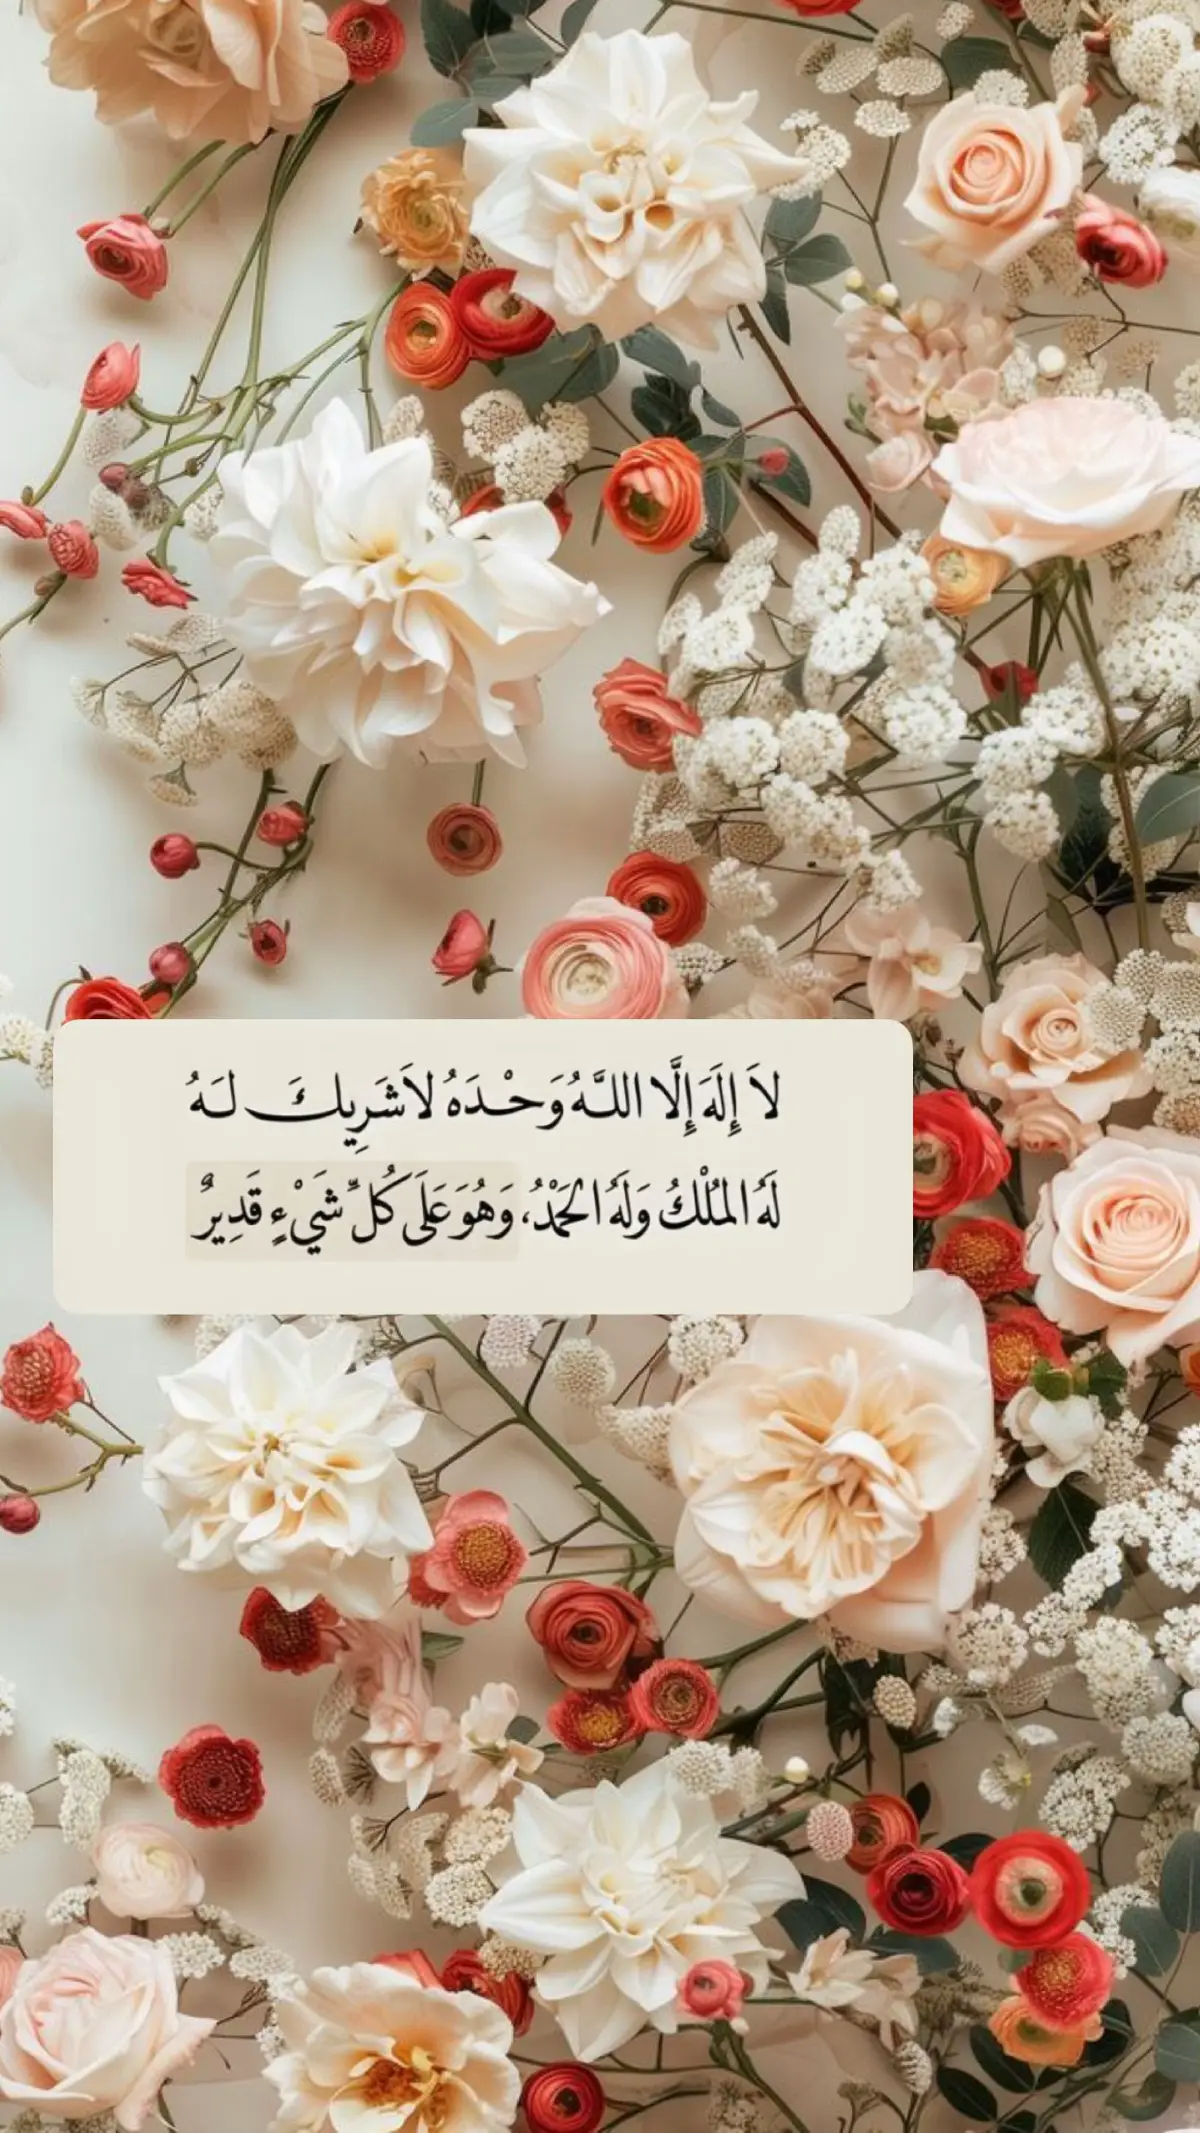 لاَ إِلَهَ إِلَّا اللَّهُ وَحْدَهُ لاَ شَرِيكَ لَهُ
لَهُ المُلْكُ وَلَهُ الحَمْدُ، وَهُوَ عَلَى كُلِّ شَيْءٍ قَدِيرٌ